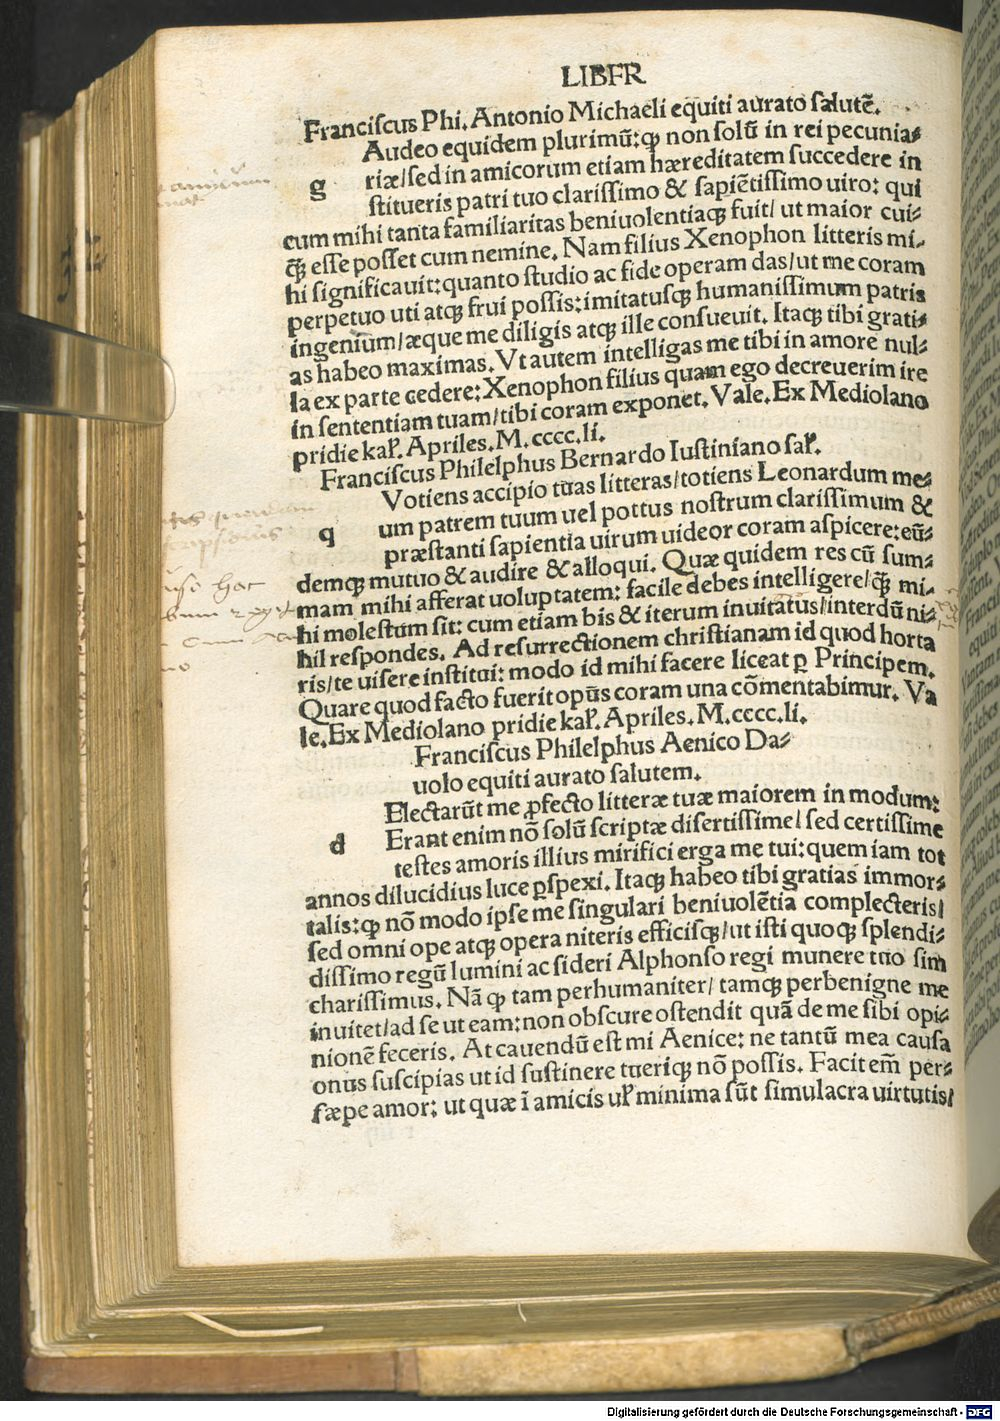 LIBER
Franciscus Phi. Antonio Michaeli equiti aurato salutē.
g Audeo equidem plurimū: ꝙ non solū in rei pecunia-
riæ/sed in amicorum etiam hæreditatem succedere in
stitueris patri tuo clarissimo & sapiētissimo uiro: qui
cum mihi tanta familiaritas beniuolentiaqꝫ fuit/ ut maior cui-
ꝙ̄ esse posset cum nemine. Nam filius Xenophon litteris mi-
hi significauit: quanto studio ac fide operam das/ut me coram
perpetuo uti atqꝫ frui possis: imitatusqꝫ humanissimum patris
ingenium/æque me diligis atqꝫ ille consueuit. Itaqꝫ tibi grati-
as habeo maximas. Vt autem intelligas me tibi in amore nul-
la ex parte cedere: Xenophon filius quam ego decreuerim ire
in sententiam tuam/tibi coram exponet. Vale. Ex Mediolano
pridie kaꝉ. Apriles. M. cccc. li.
Franciscus Philelphus Bernardo Iustiniano saꝉ.
q Votiens accipio tuas litteras/totiens Leonardum me-
um patrem tuum uel pottus nostrum clarissimum &
præstanti sapientia uirum uideor coram aspicere: eū-
demqꝫ mutuo & audire & alloqui. Quæ quidem res cū sum-
mam mihi afferat uoluptatem: facile debes intelligere/ ꝙ̄ mi-
hi molestum sit: cum etiam bis & iterum inuitatus/interdū ni-
hil respondes. Ad resurrectionem christianam id quod horta
ris/te uisere institui: modo id mihi facere liceat ꝑ Principem.
Quare quod facto fuerit opus coram una cōmentabimur. Va
le. Ex Mediolano pridie kaꝉ. Apriles. M. cccc. li.
Franciscus Philelphus Aenico Da-
uolo equiti aurato salutem.
d Electarūt me ꝓfecto litteræ tuæ maiorem in modum:
Erant enim nō solū scriptæ disertissime/ sed certissime
testes amoris illius mirifici erga me tui: quem iam tot
annos dilucidius luce ꝑspexi. Itaqꝫ habeo tibi gratias immor-
talis: ꝙ nō modo ipse me singulari beniuolētia complecteris/
sed omni ope atqꝫ opera niteris efficisqꝫ/ut isti quoqꝫ splendi-
dissimo regū lumini ac sideri Alphonso regi munere tuo sim
charissimus. Nā ꝙ tam perhumaniter/ tamqꝫ perbenigne me
inuitet/ad se ut eam: non obscure ostendit quā de me sibi opi-
nionē feceris. At cauendū est mi Aenice: ne tantū mea causa
onus suscipias ut id sustinere tueriqꝫ nō possis. Facit em̄ per-
sæpe amor: ut quæ ī amicis uꝉ minima sūt simulacra uirtutis/
Digitalisierung gefördert durch die Deutsche Forschungsgemeinschaft - DFG